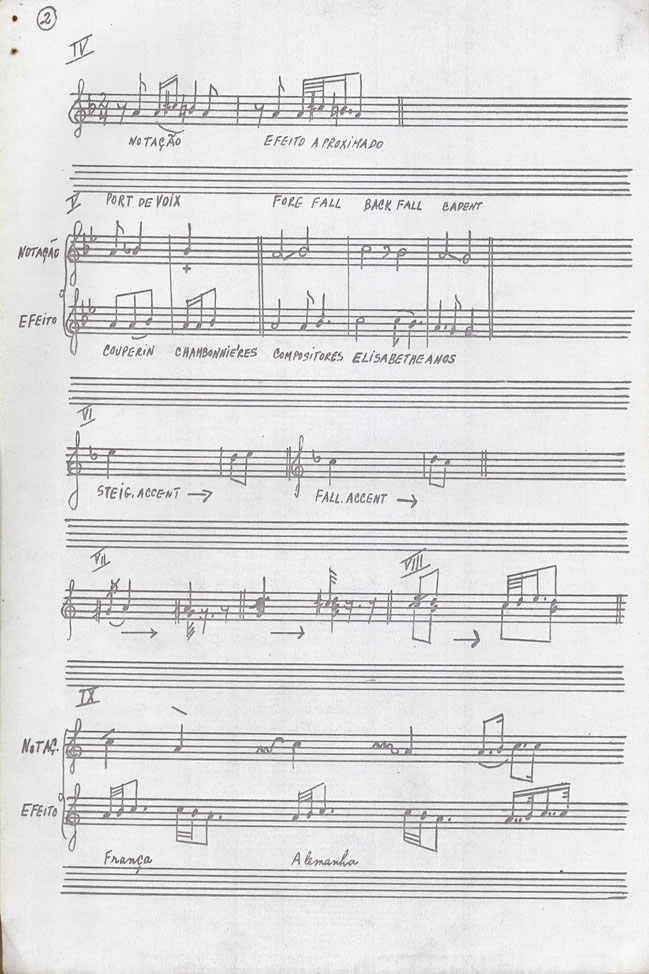 2
IV
NOTAÇÃO EFEITO APROXIMADO
V PORT DE VOIX FORE FALL BACK FALL CADENT
NOTAÇÃO
EFEITO
COUPERIN CHAMBONNIÈRES COMPOSITORES ELISABETHEANOS
VI
STEIG. ACCENT → FALL. ACCENT →
VII VIII
→ → →
IX
NOTAÇ.
EFEITO
França Alemanha